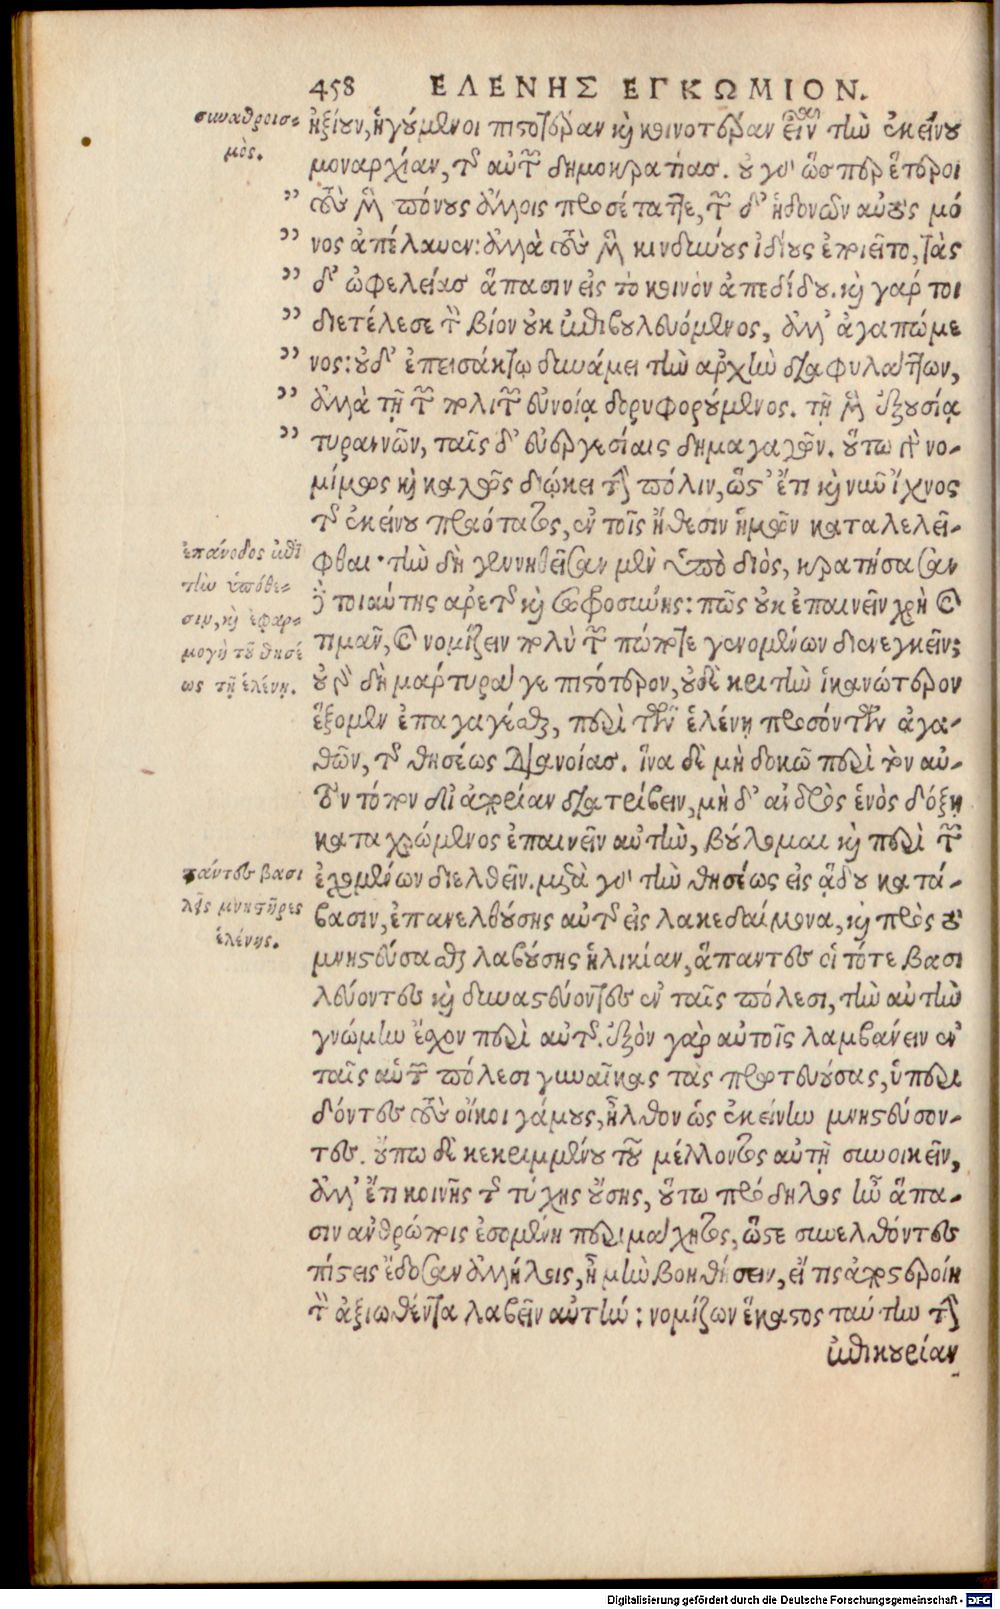 458 ΕΛΕΝΗΣ ΕΓΚΩΜΙΟΝ.
συναθροισ-
μὸς.
ἠξίουν, ἡγούμενοι πιστοτέραν καὶ κοινοτέραν εἶναι τὴν ἐκείνου
μοναρχίαν, τῆς αὑτῶν δημοκρατίας. οὐ γὰρ ὥσπερ ἕτεροι
" τοὺς μὲν πόνους ἄλλοις προσέταττε, τῶν δ' ἡδονῶν αὐτὸς μό
" νος ἀπέλαυεν: ἀλλὰ τοὺς μὲν κινδύνους ἰδίους ἐποιεῖτο, τὰς
" δ' ὠφελείας ἅπασιν εἰς τὸ κοινὸν ἀπεδίδου. καὶ γάρ τοι
" διετέλεσε τὸν βίον οὐκ ἐπιβουλευόμενος, ἀλλ' ἀγαπώμε
" νος: οὐδ' ἐπεισάκτῳ δυνάμει τὴν ἀρχὴν διαφυλάττων,
" ἀλλὰ τῇ τῶν πολιτῶν εὐνοίᾳ δορυφορούμενος. τῇ μὲν ἐξουσίᾳ
" τυραννῶν, ταῖς δ' εὐεργεσίαις δημαγωγῶν. οὕτω γὰρ νο-
μίμως καὶ καλῶς διῴκει τὴν πόλιν, ὥστ' ἔτι καὶ νῦν ἴχνος
τῆς ἐκείνου πραότητος, ἐν τοῖς ἤθεσιν ἡμῶν καταλελεῖ-
ἐπάνοδος ἐπὶ
τὴν ὑπόθε-
σιν, καὶ ἐφαρ-
μογὴ τοῦ θησέ
ως τῇ ἑλένῃ.
φθαι. τὴν δὴ γεννηθεῖσαν μὲν ὑπὸ διὸς, κρατήσασαν
δὲ τοιαύτης ἀρετῆς καὶ σωφροσύνης: πῶς οὐκ ἐπαινεῖν χρὴ καὶ
τιμᾶν, καὶ νομίζειν πολὺ τῶν πώποτε γενομένων διενεγκεῖν;
οὐ γὰρ δὴ μάρτυρά γε πιστότερον, οὐδὲ κριτὴν ἱκανώτερον
ἕξομεν ἐπαγαγέσθαι, περὶ τῶν ἑλένῃ προσόντων ἀγα-
θῶν, τῆς θησέως διανοίας. ἵνα δὲ μὴ δοκῶ περὶ τὸν αὐ-
τὸν τόπον δι' ἀπορίαν διατρίβειν, μὴ δ' ἀνδρὸς ἑνὸς δόξῃ
καταχρώμενος ἐπαινεῖν αὐτὴν, βούλομαι καὶ περὶ τῶν
πάντες βασι
λῆς μνηστῆρες
ἑλένης.
ἐχομένων διελθεῖν. μετὰ γὰρ τὴν θησέως εἰς ᾅδου κατά-
βασιν, ἐπανελθούσης αὐτῆς εἰς λακεδαίμονα, καὶ πρὸς τὸ
μνηστεύσασθαι λαβούσης ἡλικίαν, ἅπαντες οἱ τότε βασι
λεύοντες καὶ δυναστεύοντες ἐν ταῖς πόλεσι, τὴν αὐτὴν
γνώμην ἔχον περὶ αὐτῆς. ἐξὸν γὰρ αὐτοῖς λαμβάνειν ἐν
ταῖς αὑτῶν πόλεσι γυναῖκας τὰς πρωτευούσας, ὑπερι
δόντες τοὺς οἴκοι γάμους, ἦλθον ὡς ἐκείνην μνηστεύσον-
τες. οὔπω δὲ κεκριμμένου τοῦ μέλλοντος αὐτῇ συνοικεῖν,
ἀλλ' ἔτι κοινῆς τῆς τύχης οὔσης, οὕτω πρόδηλος ἦν ἅπα-
σιν ἀνθρώποις ἐσομένη περιμάχητος, ὥστε συνελθόντες
πίστεις ἔδοσαν ἀλλήλοις, ἦ μὴν βοηθήσειν, εἴ τις ἀποστεροίη
τὸν ἀξιωθέντα λαβεῖν αὐτήν: νομίζων ἕκαστος ταύτην τὴν
ἐπικουρίαν
Digitalisierung gefördert durch die Deutsche Forschungsgemeinschaft - DFG